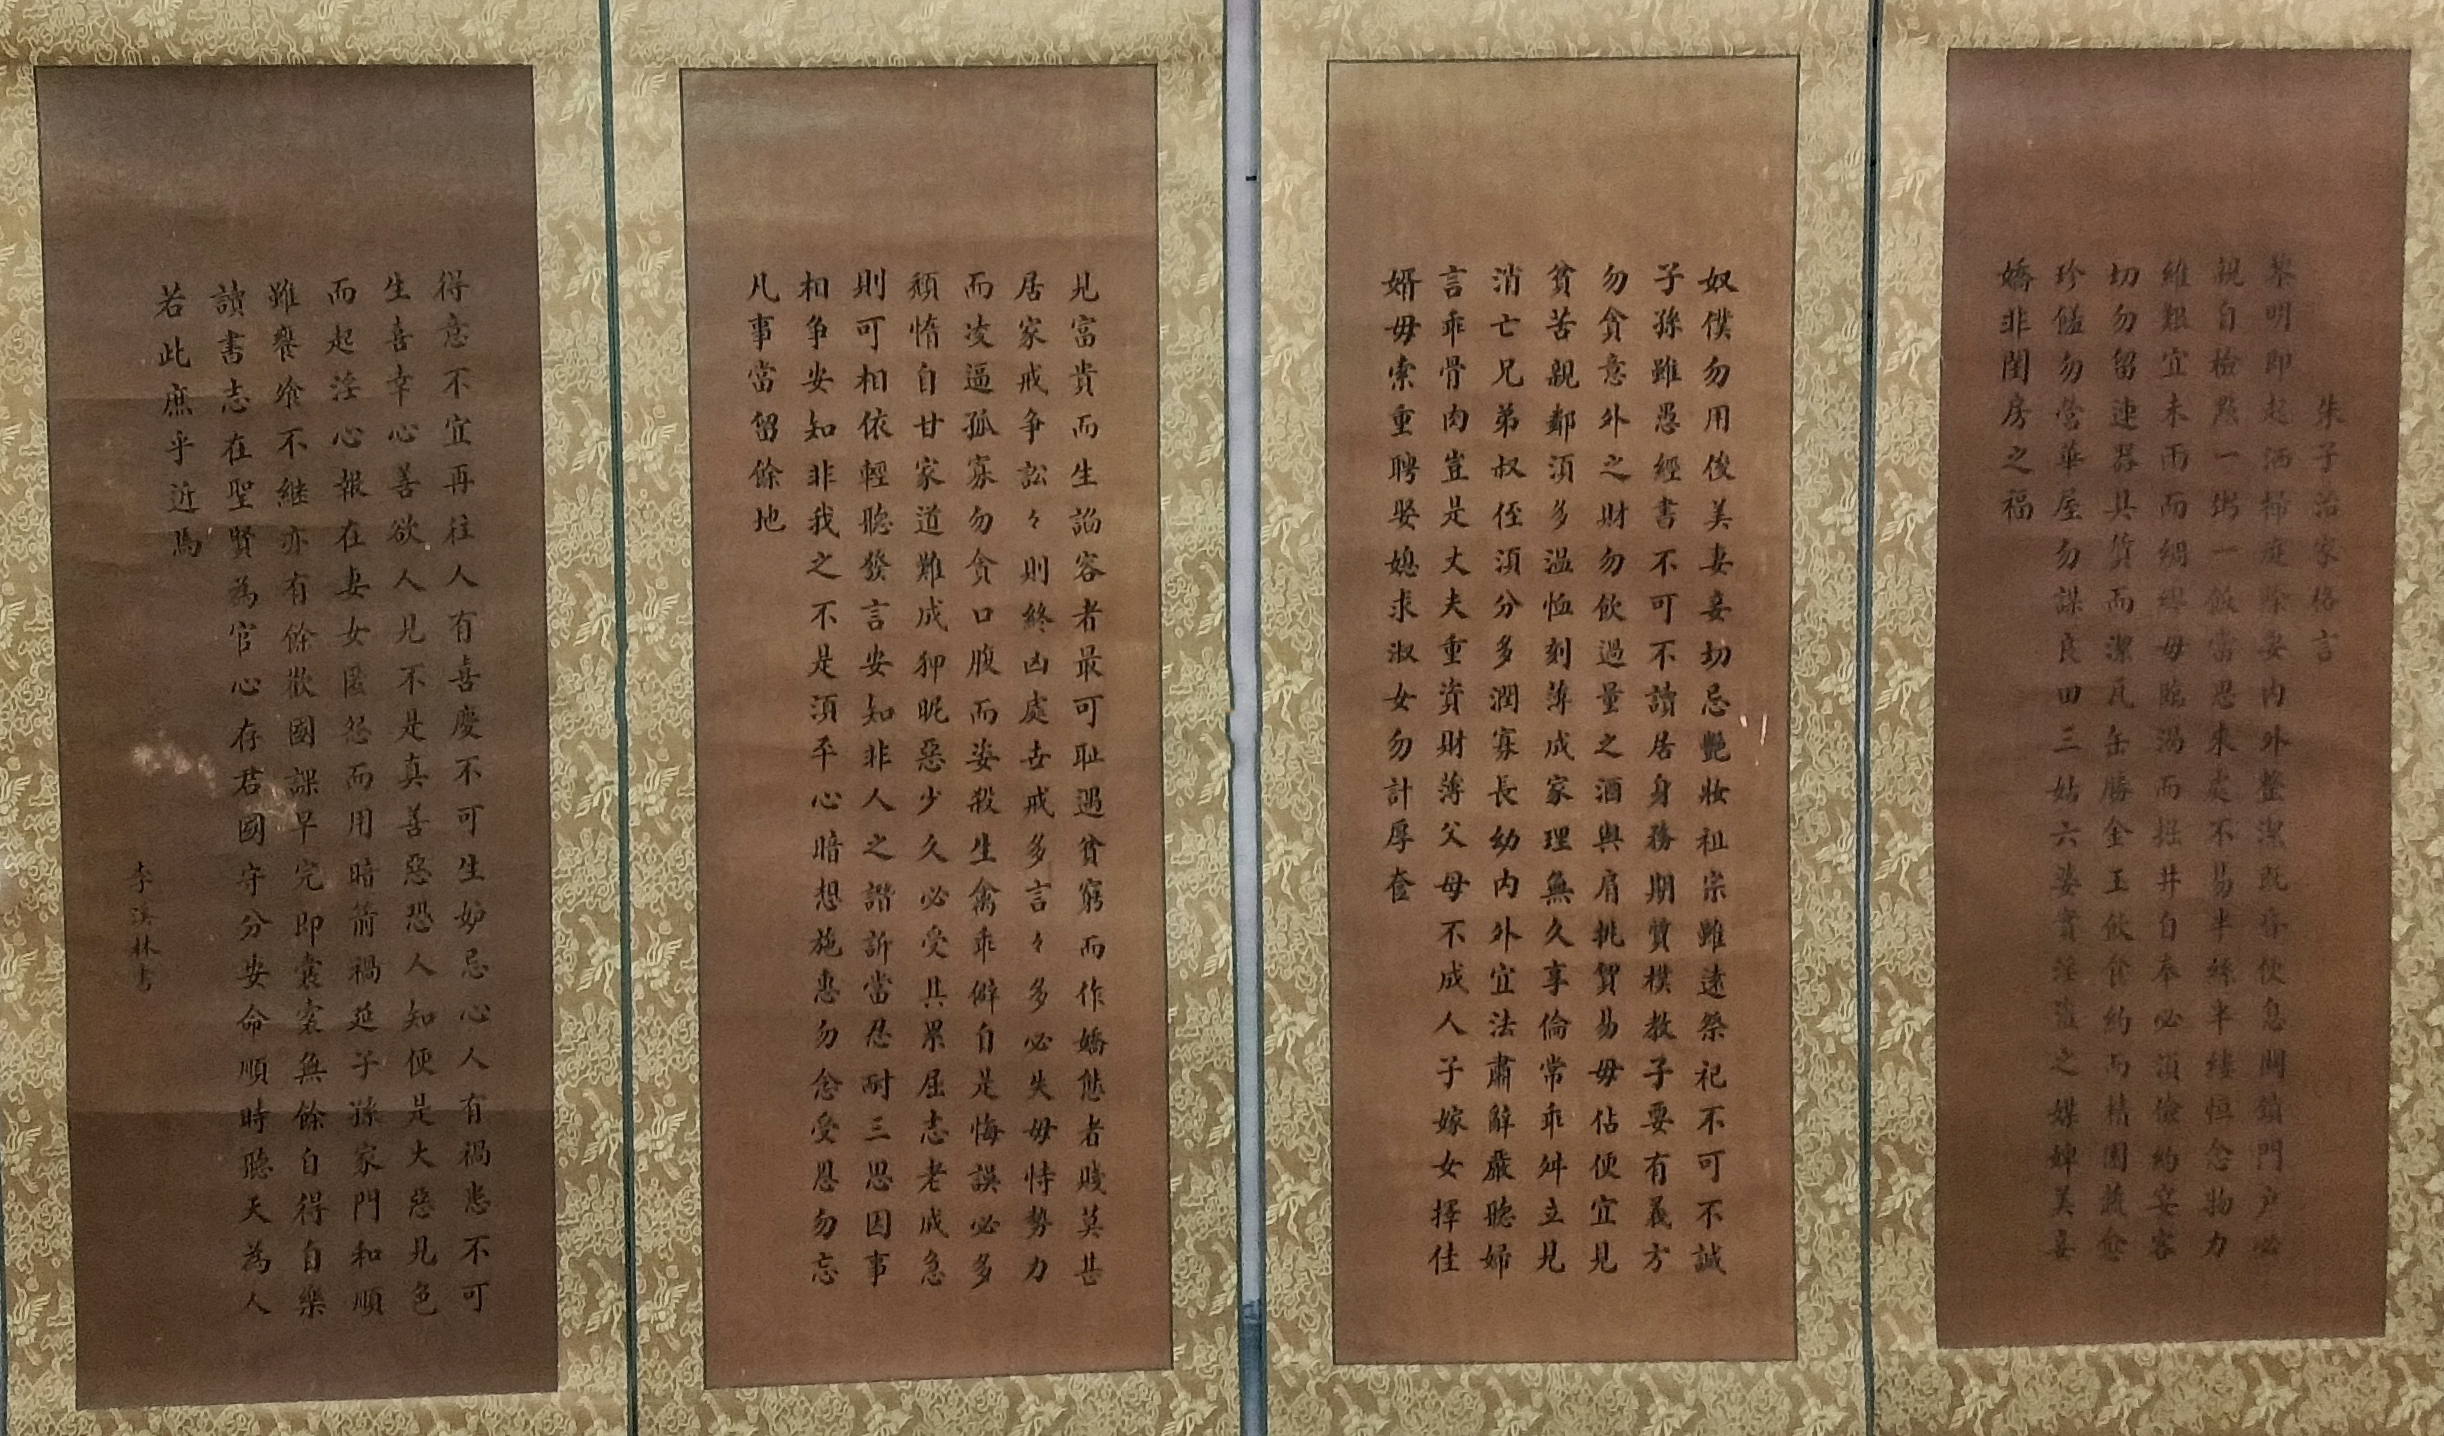 朱子治家格言
黎明即起洒掃庭除要内外整潔既昏便息關鎖門户必
親自檢點一粥一飯當思來處不易半絲半縷恒念物力
維艱宜未雨而綢繆毋臨渴而掘井自奉必須儉約宴客
切勿留連器具質而潔瓦缶勝金玉飲食約而精園蔬愈
珍饈勿營華屋勿謀良田三姑六婆實淫盜之媒婢美妾
嬌非閨房之福
奴僕勿用俊美妻妾切忌艷妝祖宗雖遠祭祀不可不誠
子孫雖愚經書不可不讀居身務期質樸教子要有義方
勿貪意外之財勿飲過量之酒與肩挑貿易毋佔便宜見
貧苦親鄰須多溫恤刻薄成家理無久享倫常乖舛立見
消亡兄弟叔侄須分多潤寡長幼内外宜法肅辭嚴聽婦
言乖骨肉豈是丈夫重資財薄父母不成人子嫁女擇佳
婿毋索重聘娶媳求淑女勿計厚奩
見富貴而生諂容者最可恥遇貧窮而作嬌態者賤莫甚
居家戒爭訟々則終凶處世戒多言々多必失毋恃勢力
而凌逼孤寡勿貪口腹而姿殺生禽乖僻自是悔誤必多
頹惰自甘家道難成狎昵惡少久必受其累屈志老成急
則可相依輕聽發言安知非人之譖訴當忍耐三思因事
相爭安知非我之不是須平心暗想施惠勿念受恩勿忘
凡事當留餘地
得意不宜再往人有喜慶不可生妒忌心人有禍患不可
生喜幸心善欲人見不是真善惡恐人知便是大惡見色
而起淫心報在妻女匿怨而用暗箭禍延子孫家門和順
雖饔飧不繼亦有餘歡國課早完即囊橐無餘自得自樂
讀書志在聖賢為官心存君國守分安命順時聽天為人
若此庶乎近焉
李溪林書